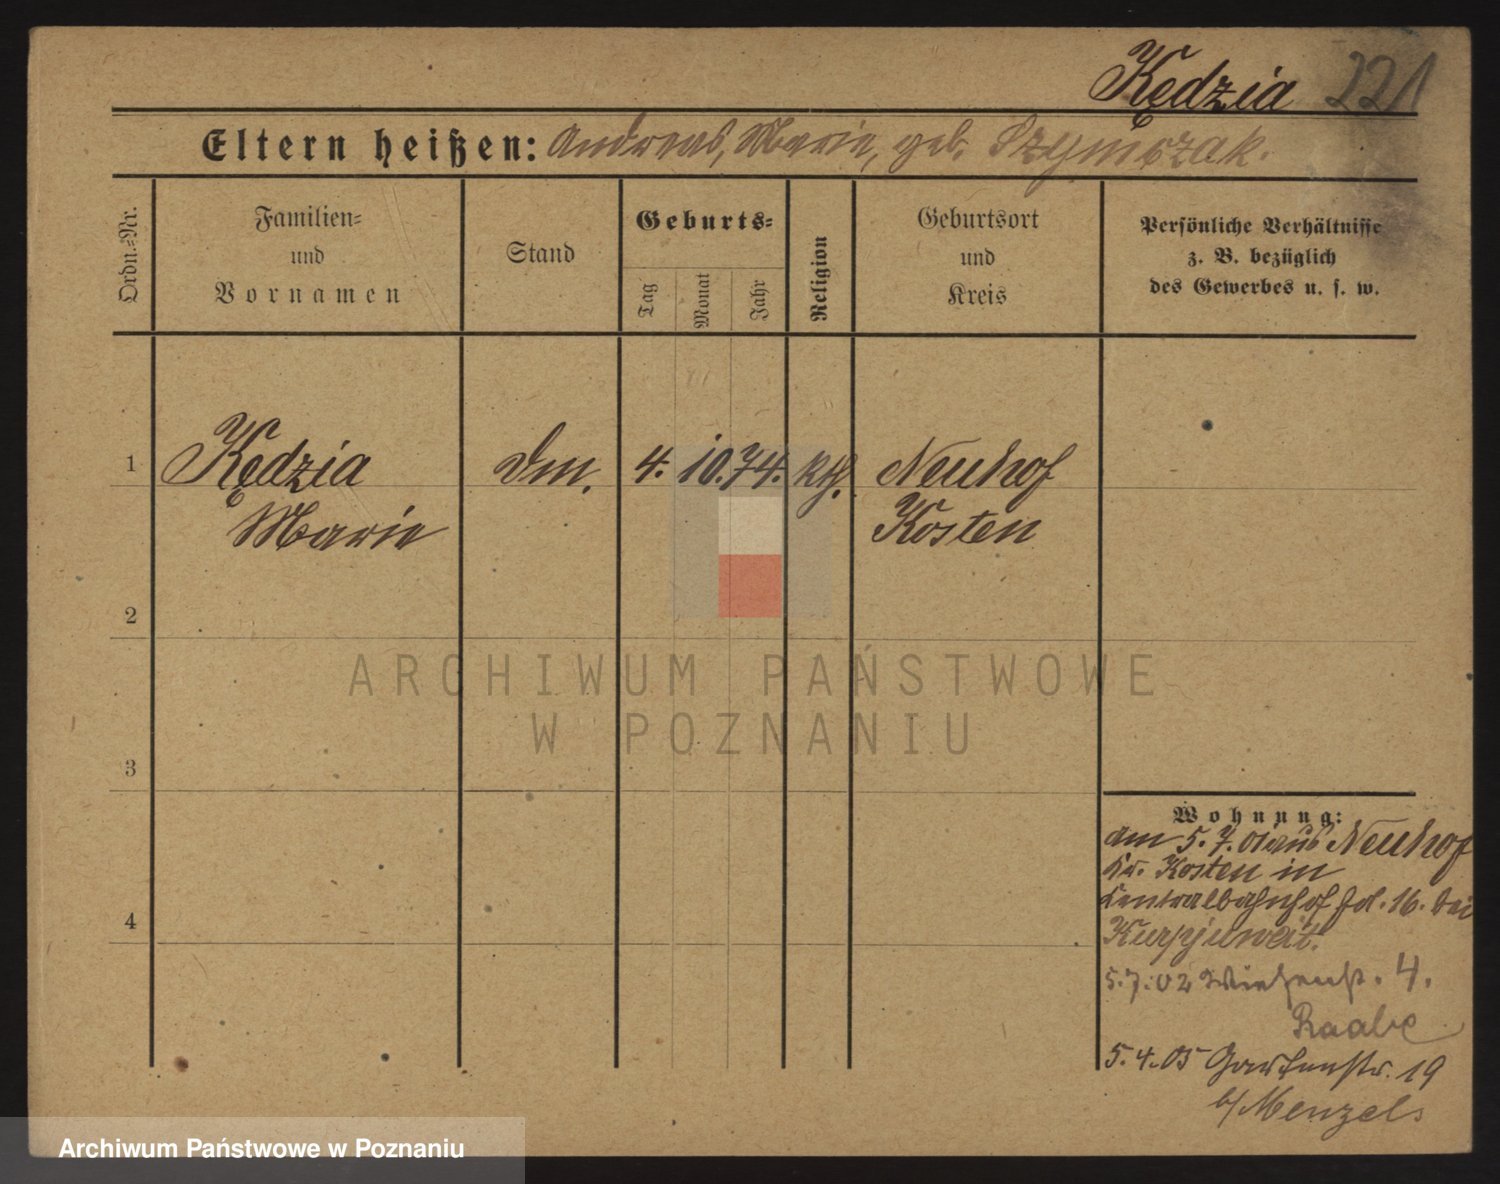 Kędzia 221
Eltern heißen: Andreas, Marie, geb. Szymczak.
Ordn.=Nr.
Familien=
und
Vornamen
Stand
Geburts=
Tag
Monat
Jahr
Religion
Geburtsort
und
Kreis
Persönliche Verhältnisse
z. B. bezüglich
des Gewerbes u. s. w.
1 Kędzia 4. 10. 74. kth. Neuhof
Marie Kosten
2
ARCHIWUM PAŃSTWOWE
W POZNANIU
3
Wohnung:
am 5. 7. 01 aus Neuhof
Kr. Kosten in
Centralbahnhof 16. bei
4
5. 7. 02 4.
Raabe
5. 4. 05 Gartenstr. 19
b/ Menzel
Archiwum Państwowe w Poznaniu